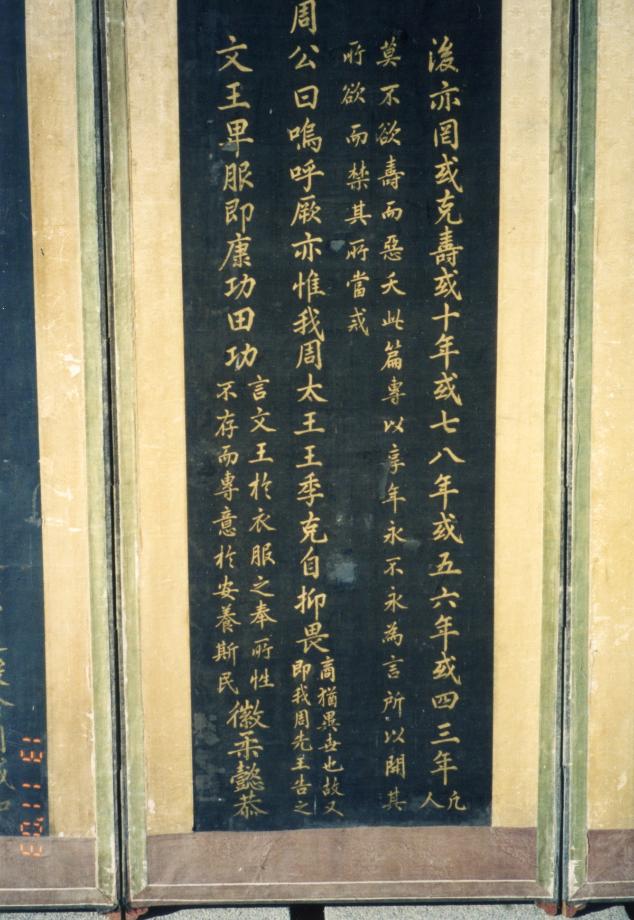 後亦罔或克壽或十年或七八年或五六年或四三年凡人
莫不欲壽而惡夭此篇專以享年永不永為言所以開其
所欲而禁其所當戒
周公曰嗚呼厥亦惟我周太王王季克自抑畏商猶異世也故又
即我周先王告之
文王卑服即康功田功言文王於衣服之奉所性
不存而專意於安養斯民徽柔懿恭
13 11:33